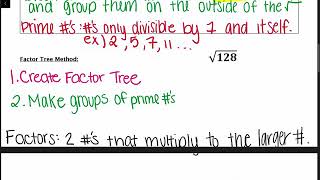 and group them on the outside of the √
Prime #'s: #'s only divisible by 1 and itself.
ex) 2, 5, 7, 11 ...
Factor Tree Method:
√128
1. Create Factor Tree
2. Make groups of prime #'s
Factors: 2 #'s that multiply to the larger #.